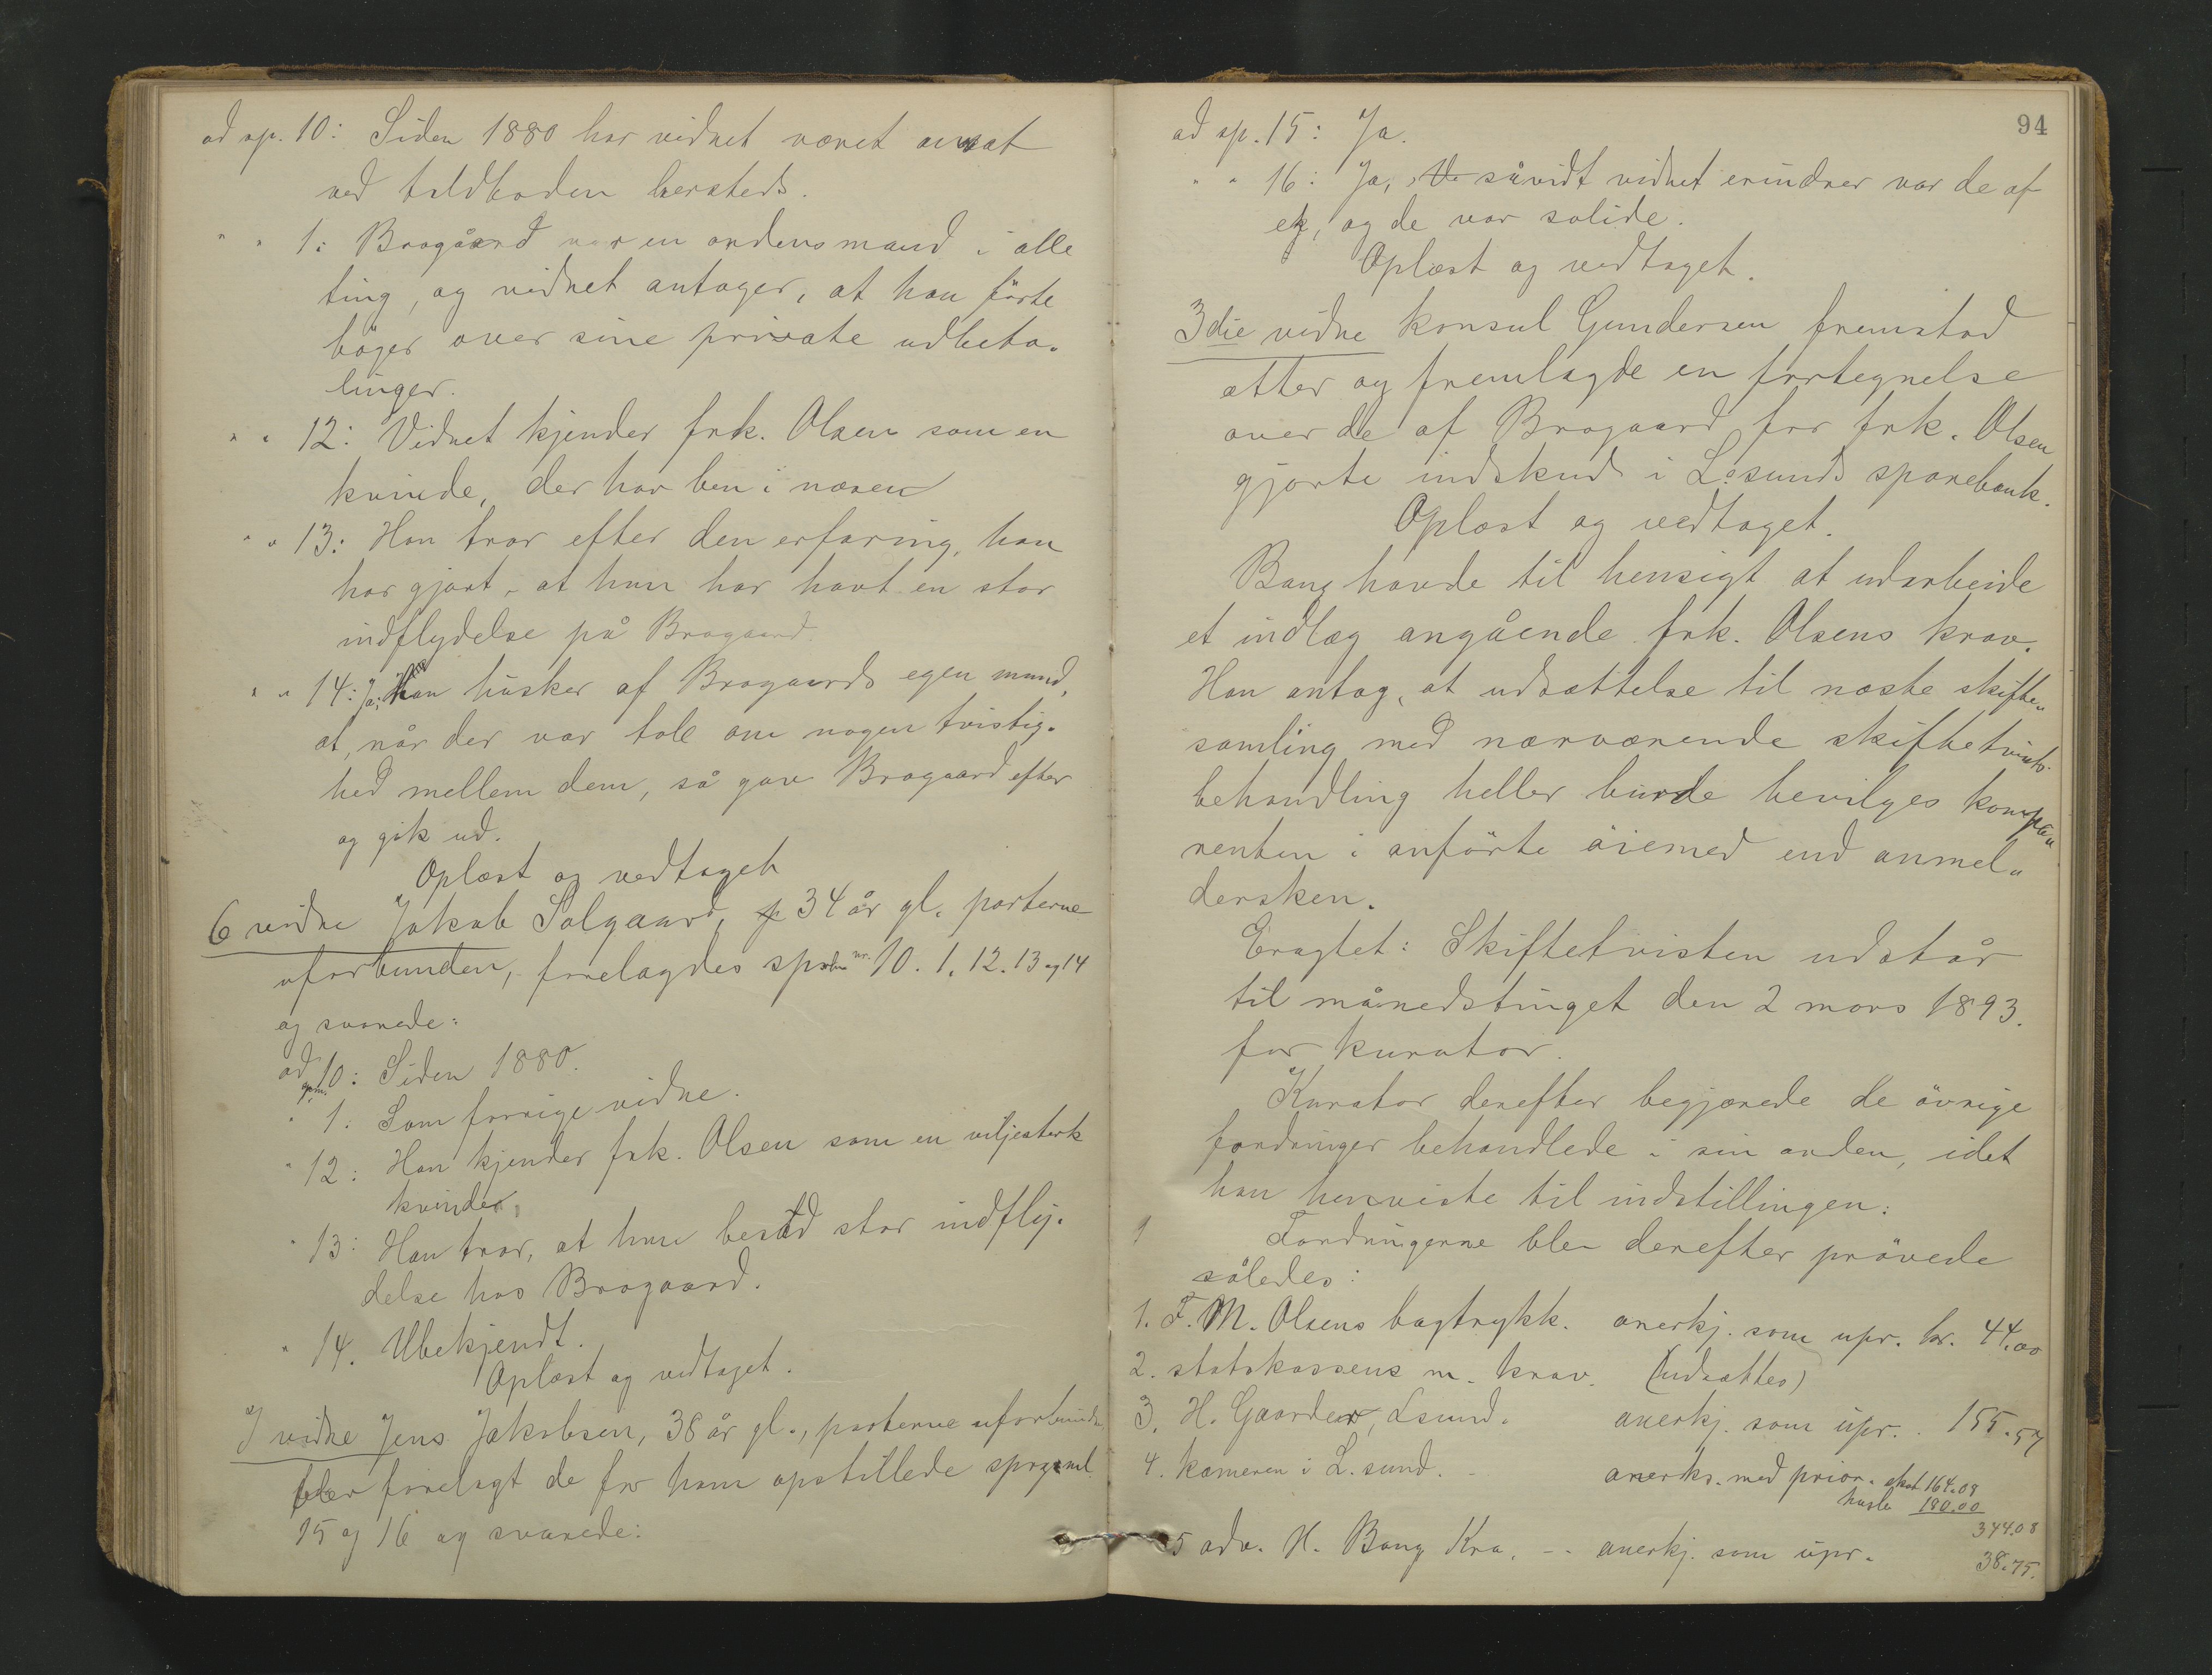 ad sp. 10: Siden 1880 har vidnet været ansat
ved toldboden hersteds.
" " 1: Brogåard var en ordensmand i alle
ting, og vidnet antager, at han förte
böger over sine private udbeta-
linger.
" " 12: Vidnet kjender frk. Olsen som en
kvinde, der har ben i næsen
" " 13: Han tror efter den erfaring, han
har gjort, at hun har havt en stor
indflydelse på Brogaard.
" " 14: Ja, han husker af Brogaards egen mund,
at, når der var tale om nogen tvistig-
hed mellem dem, så gav Brogaard efter
og gik ud.
Oplæst og vedtaget
6 vidne Jakob Solgaard, 34 år gl. parterne
uforbunden, forelagdes spsm nr. 10. 1. 12. 13 og 14
og svarede:
ad spm. 10: Siden 1880.
" 1. Som forrige vidne.
" 12: Han kjender frk. Olsen som en viljesterk
kvinde.
" 13: Han tror, at hun besad stor indfly-
delse hos Brogaard.
" 14. Ubekjendt.
Oplæst og vedtaget.
7 vidne Jens Jakobsen, 38 år gl., parterne uforbunden
blev forelagt de for ham opstillede spsgsml.
15 og 16 og svarede:
94
ad sp. 15: Ja.
" " 16: Ja, såvidt vidnet erindrer var de af
ek, og de var solide.
Oplæst og vedtaget.
3die vidne konsul Gundersen fremstod
atter og fremlagde en fortegnelse
over de af Brogaard for frk. Olsen
gjorte indskud i L.sunds sparebank.
Oplæst og vedtaget.
Bang havde til hensigt at udarbeide
et indlæg angående frk. Olsens krav.
Han antog, at udsættelse til næste skifte-
samling med nærværende skiftetvists-
behandling heller burde bevilges kompa-
renten i anførte öiemed end anmel-
dersken.
Eragtet: Skiftetvisten udstår
til månedstinget den 2 mars 1893.
for kurator.
Kurator derefter begjærede de övrige
fordringer behandlede i sin orden, idet
han henviste til indstillingen.
Fordringerne blev derefter prövede
således:
1. F. M. Olsens bogtrykk. anerkj. som upr. kr. 44.00
2. statskassens m. krav. (udsættes)
3. H. Gaarder, Lsund. anerkj. som upr. 155.57
4. kæmneren i L.sund. - anerkj. med prior. skat 164.08
husle 180.00
344.08
5 adv. H. Bang Kra. - - anerkj. som upr. 38.75.